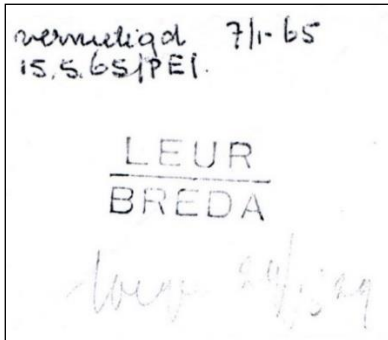 vernietigd 7/1-65
15.5.65/PEI.
LEUR
BREDA